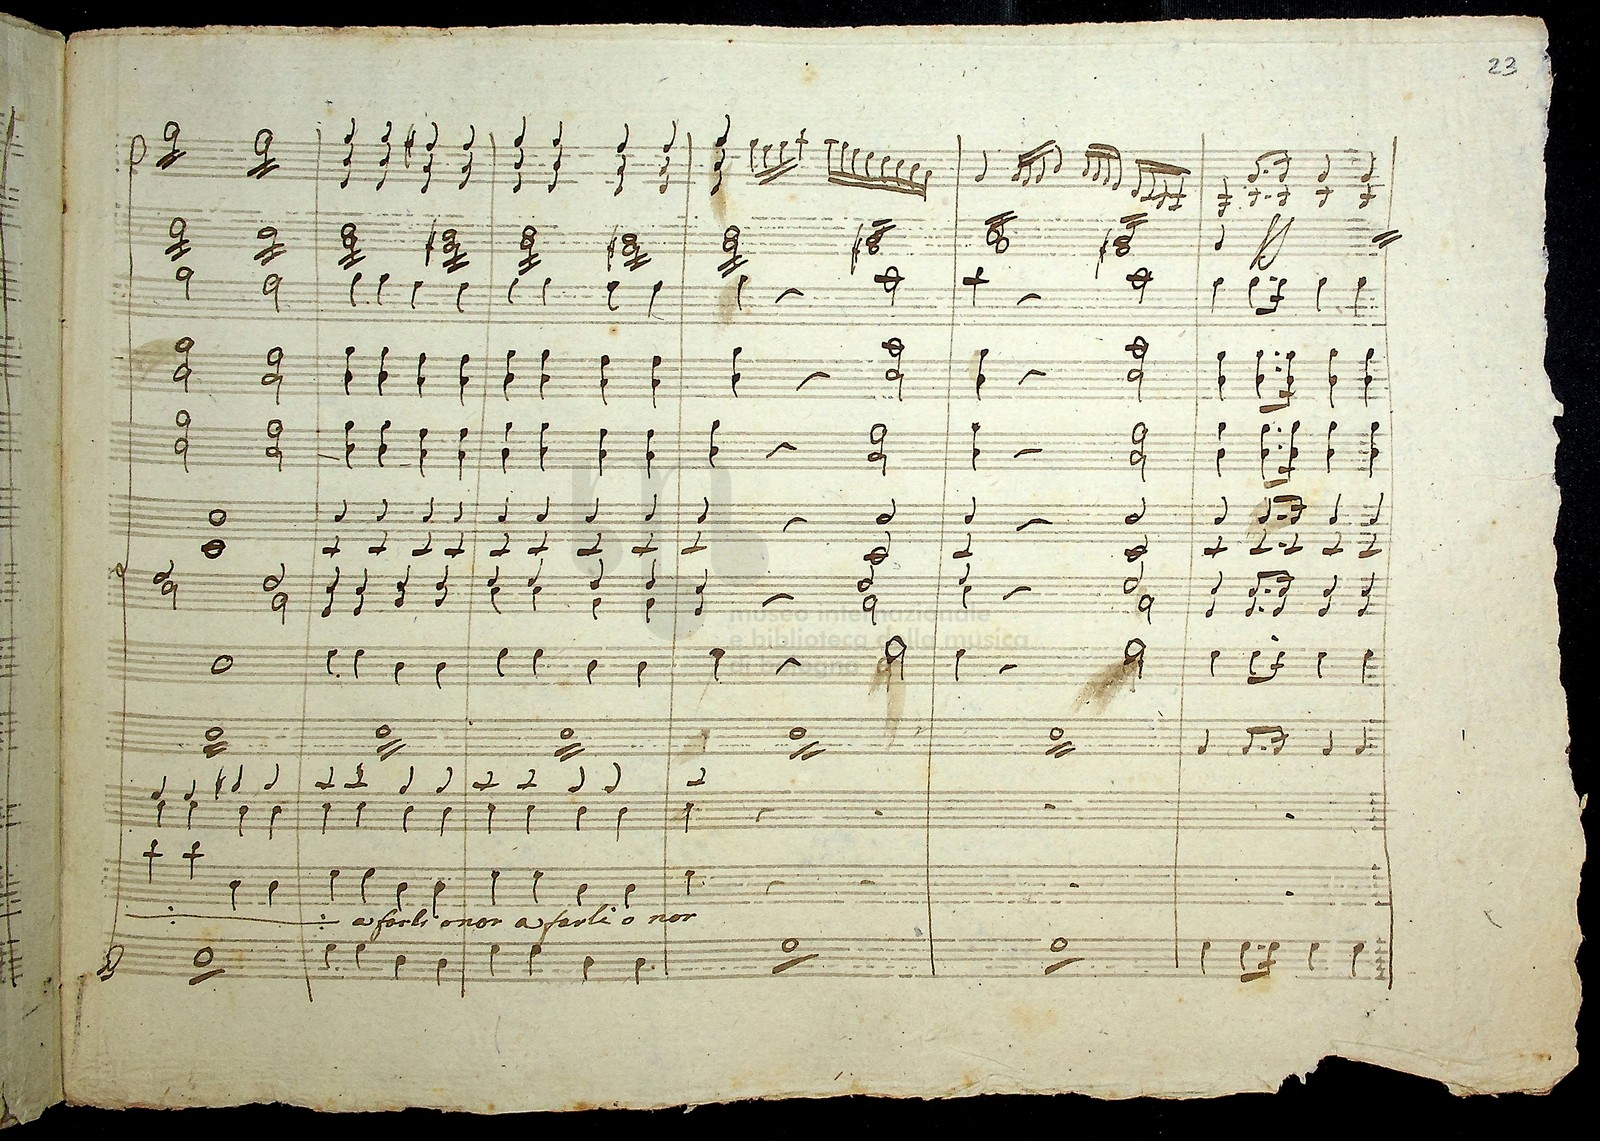 23
museo internazionale
e biblioteca della musica
di bologna
a farli onor a farli o nor